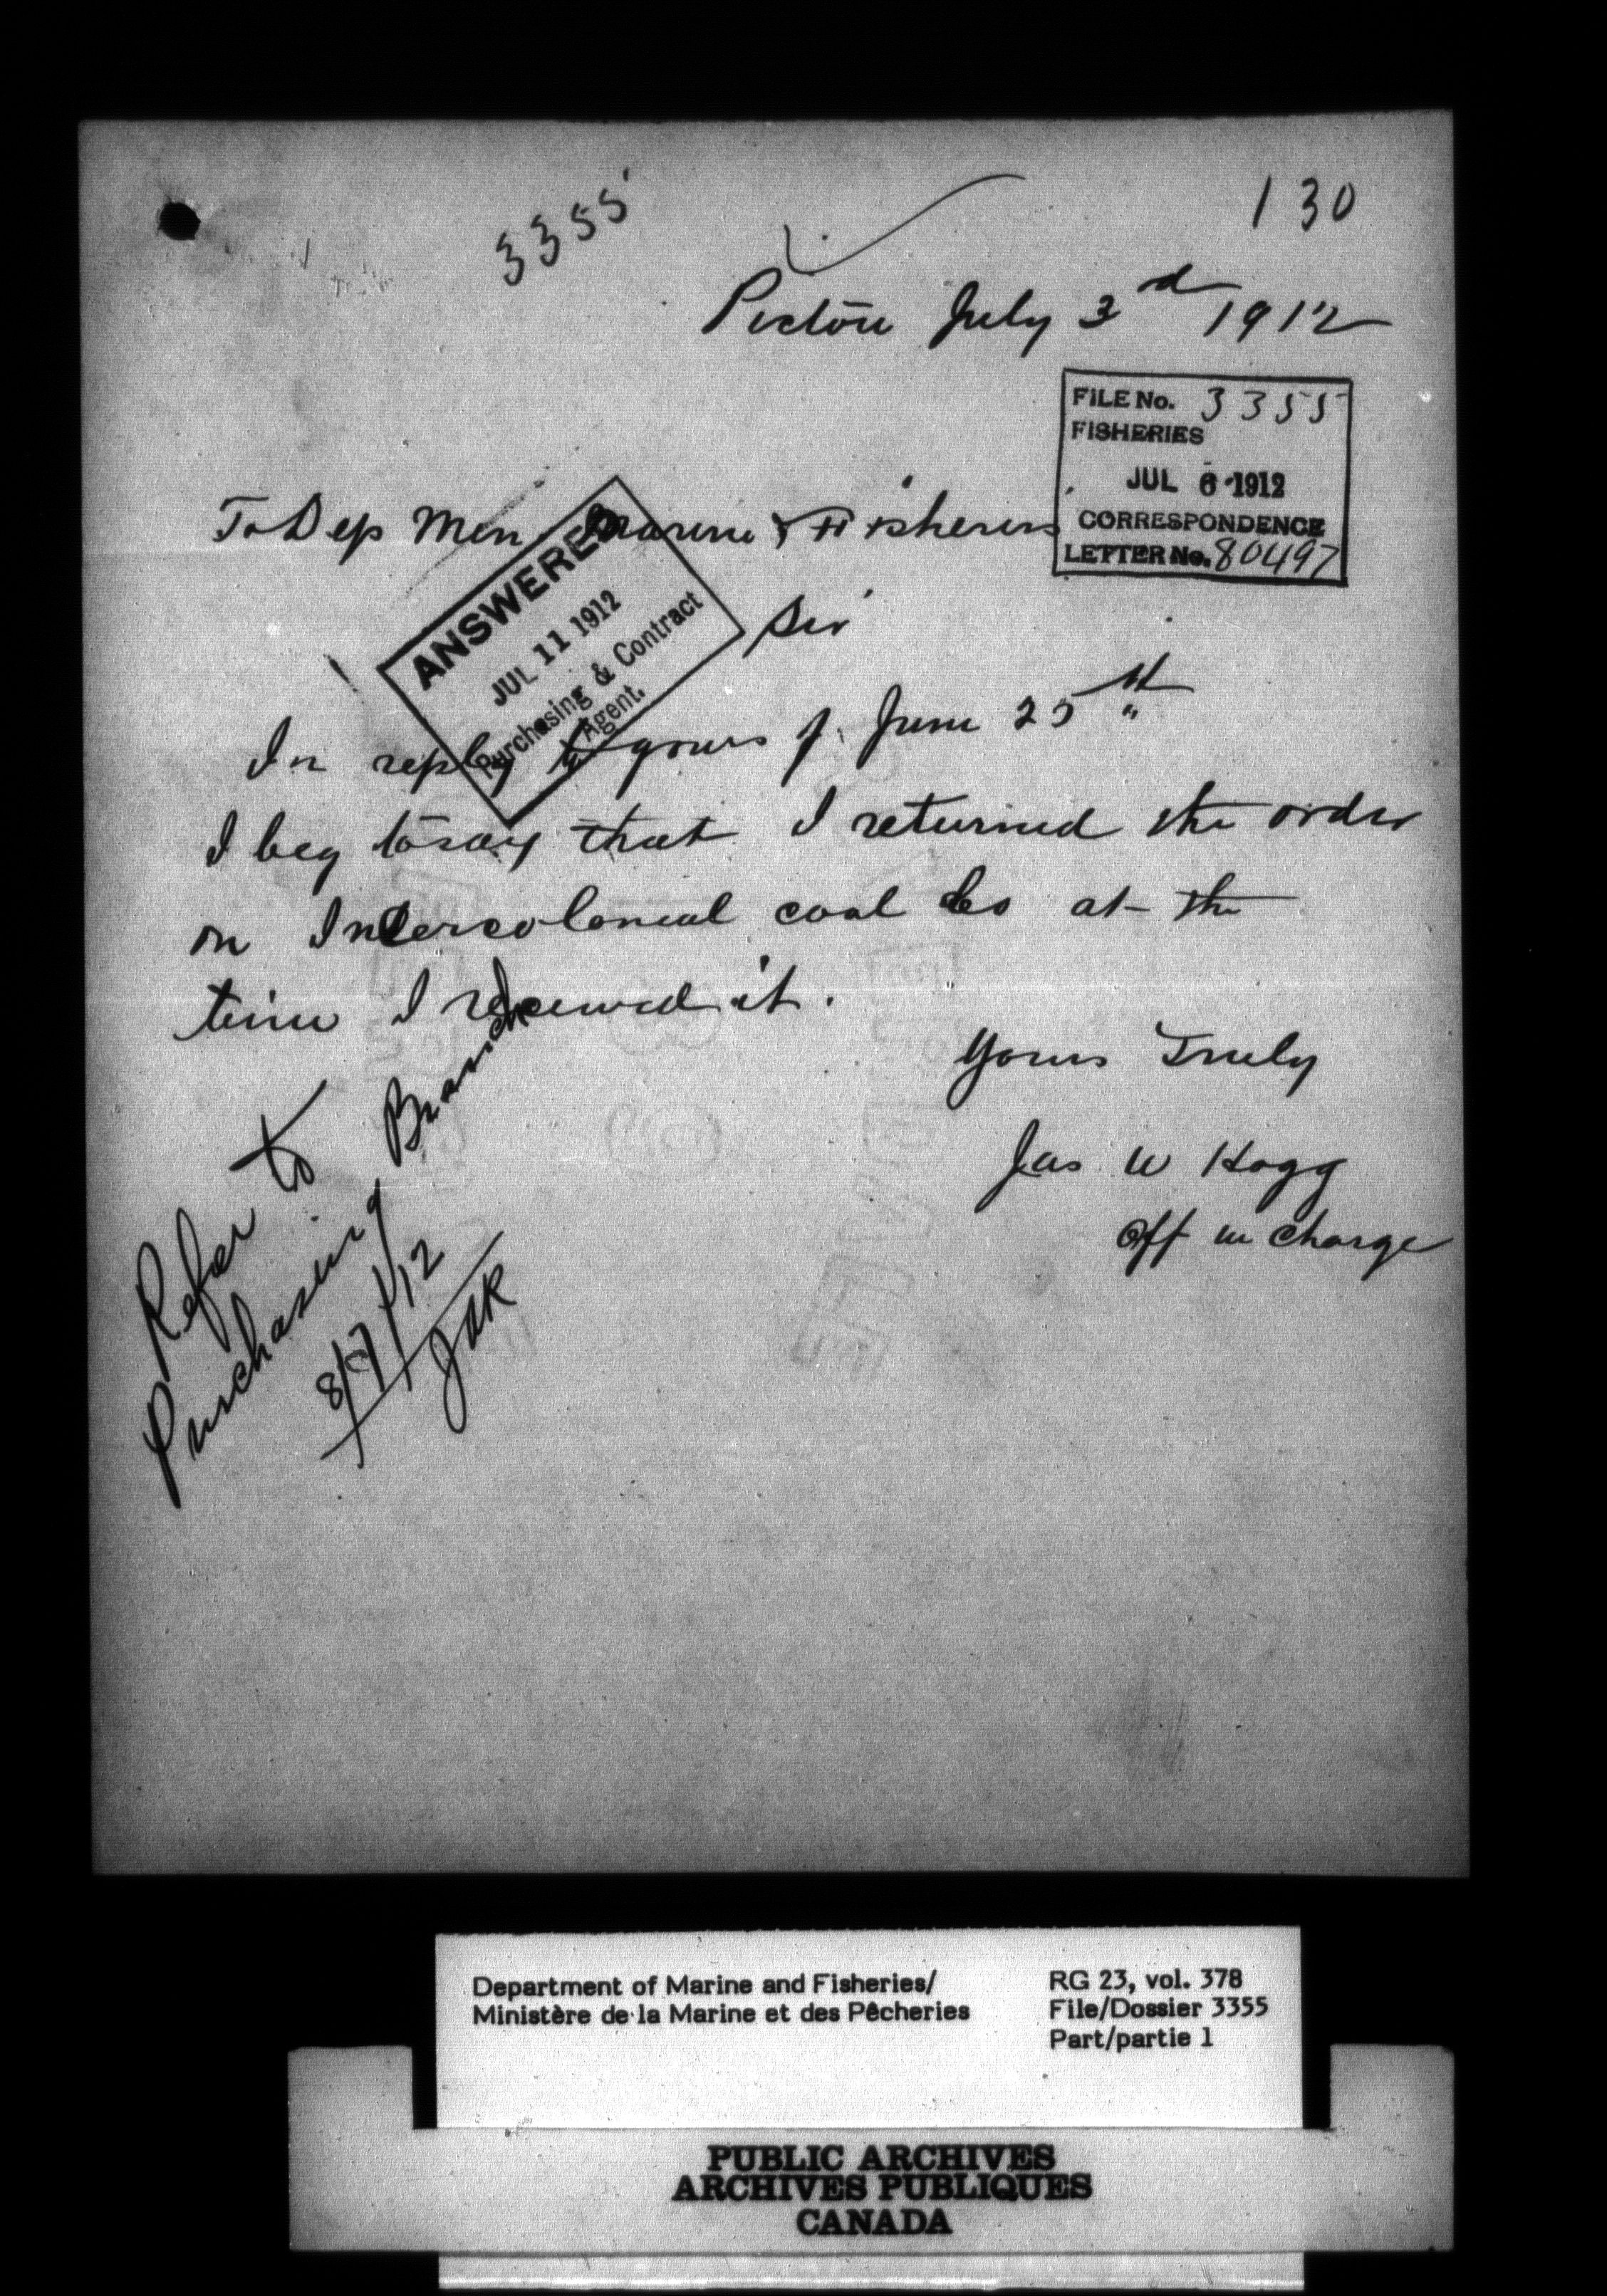 3355
130
Pictou July 3rd 1912
FILE No. 3355
FISHERIES
JUL 6 1912
CORRESPONDENCE
LETTER No. 80497
To Dep Min Marine & Fisheries
ANSWERED
JUL 11 1912
Purchasing & Contract
Agent.
Sir
In reply to yours of June 25th
I beg to say that I returned the order
on Intercolonial coal Co at the
time I received it.
Yours Truly
Jas W Hogg
Off in charge
Refer to
Purchasing Branch
8/7/12
Department of Marine and Fisheries/
Ministère de la Marine et des Pêcheries
RG 23, vol. 378
File/Dossier 3355
Part/partie 1
PUBLIC ARCHIVES
ARCHIVES PUBLIQUES
CANADA